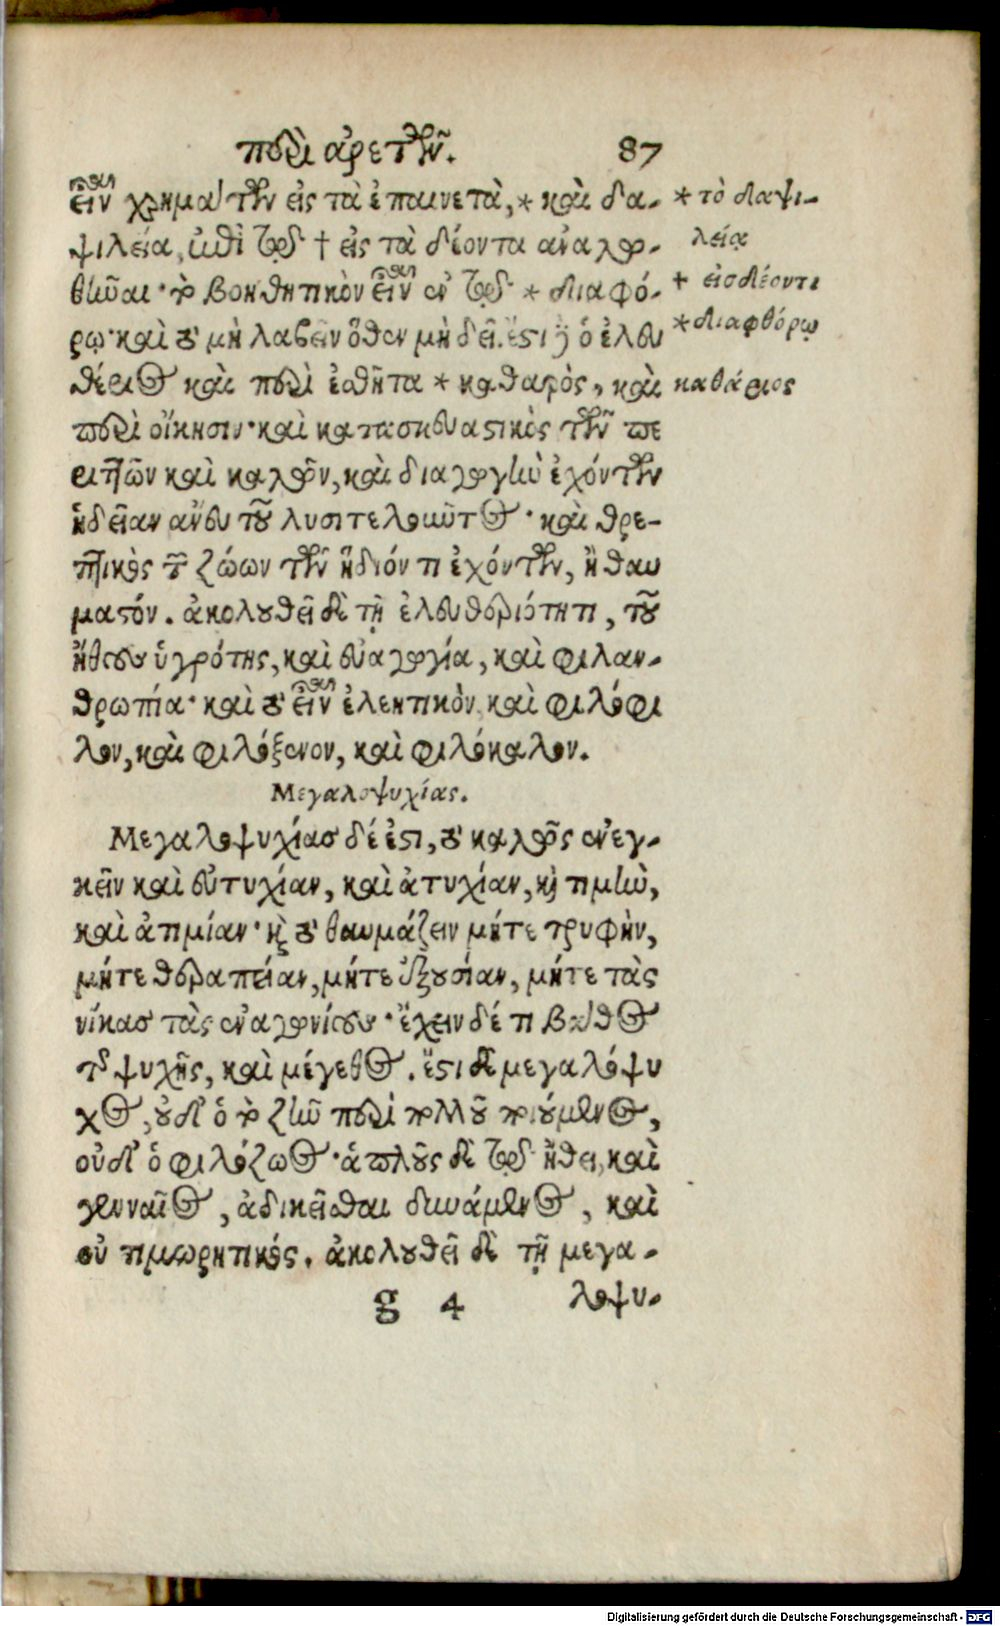 περὶ ἀρετῶν. 87
εἶναι χρημάτων εἰς τὰ ἐπαινετὰ,* καὶ δα- * τὸ δαψι-
ψιλεία, ἐπὶ τῷ † εἰς τὰ δέοντα ἀναλω- λείᾳ
θῆναι· τὸ βοηθητικὸν εἶναι ἐν τῷ * διαφό- † εἰσδέοντι
ρῳ· καὶ τὸ μὴ λαβεῖν ὅθεν μὴ δεῖ. ἔστι δὲ ὁ ἐλευ *διαφθόρῳ
θέριος καὶ περὶ ἐσθῆτα * καθαρὸς, καὶ καθάριος
περὶ οἴκησιν· καὶ κατασκευαστικὸς τῶν πε
ριττῶν καὶ καλῶν, καὶ διαγωγὴν ἐχόντων
ἡδεῖαν ἄνευ τοῦ λυσιτελοῦντος· καὶ θρε-
πτικὸς τῶν ζώων τῶν ἤδιόν τι ἐχόντων, ἢ θαυ
μαστόν. ἀκολουθεῖ δὲ τῇ ἐλευθεριότητι, τοῦ
ἤθους ὑγρότης, καὶ εὐαγωγία, καὶ φιλαν-
θρωπία· καὶ τὸ εἶναι ἐλεητικὸν, καὶ φιλόφι
λον, καὶ φιλόξενον, καὶ φιλόκαλον.
Μεγαλοψυχίας.
Μεγαλοψυχίας δέ ἐστι, τὸ καλῶς ἐνεγ-
κεῖν καὶ εὐτυχίαν, καὶ ἀτυχίαν, καὶ τιμὴν,
καὶ ἀτιμίαν· καὶ τὸ θαυμάζειν μήτε τρυφὴν,
μήτε θεραπείαν, μήτε ἐξουσίαν, μήτε τὰς
νίκας τὰς ἐναγωνίους· ἔχειν δέ τι βάθος
τῆς ψυχῆς, καὶ μέγεθος. ἔστι δὲ μεγαλόψυ
χος, οὐδ' ὁ τὸ ζῆν περὶ πολλοῦ ποιούμενος,
οὐδ' ὁ φιλόζωος· ἁπλοῦς δὲ τῷ ἤθει, καὶ
γενναῖος, ἀδικεῖσθαι δυνάμενος, καὶ
οὐ τιμωρητικός. ἀκολουθεῖ δὲ τῇ μεγα-
g 4 λοψυ-
Digitalisierung gefördert durch die Deutsche Forschungsgemeinschaft - DFG